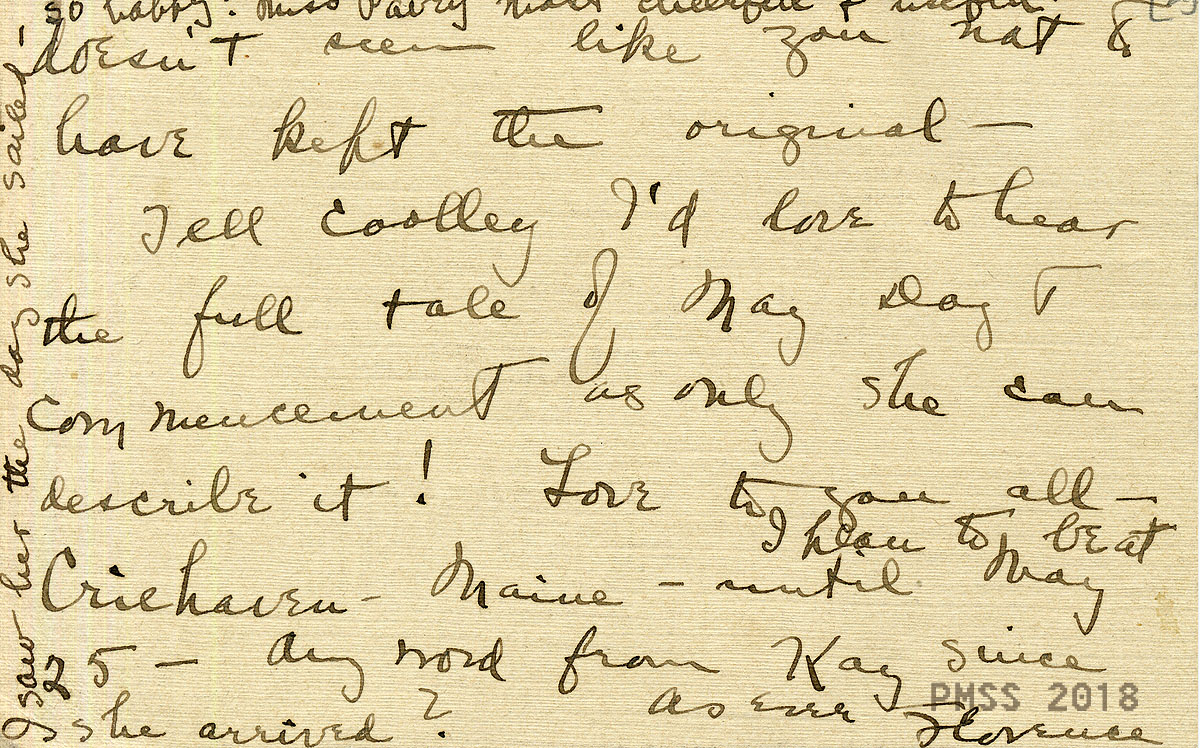 so happy. Miss Pavey most cheerful & useful.
doesn't seem like you not to
have kept the original —
Tell Coolley I'd love to hear
the full tale of May Day &
Commencement as only she can
describe it! Love to you all —
I plan to be at
Criehaven - Maine - until May
25 — Any word from Kay since
she arrived? As ever Florence
I saw her the day she sailed -
PMSS 2018